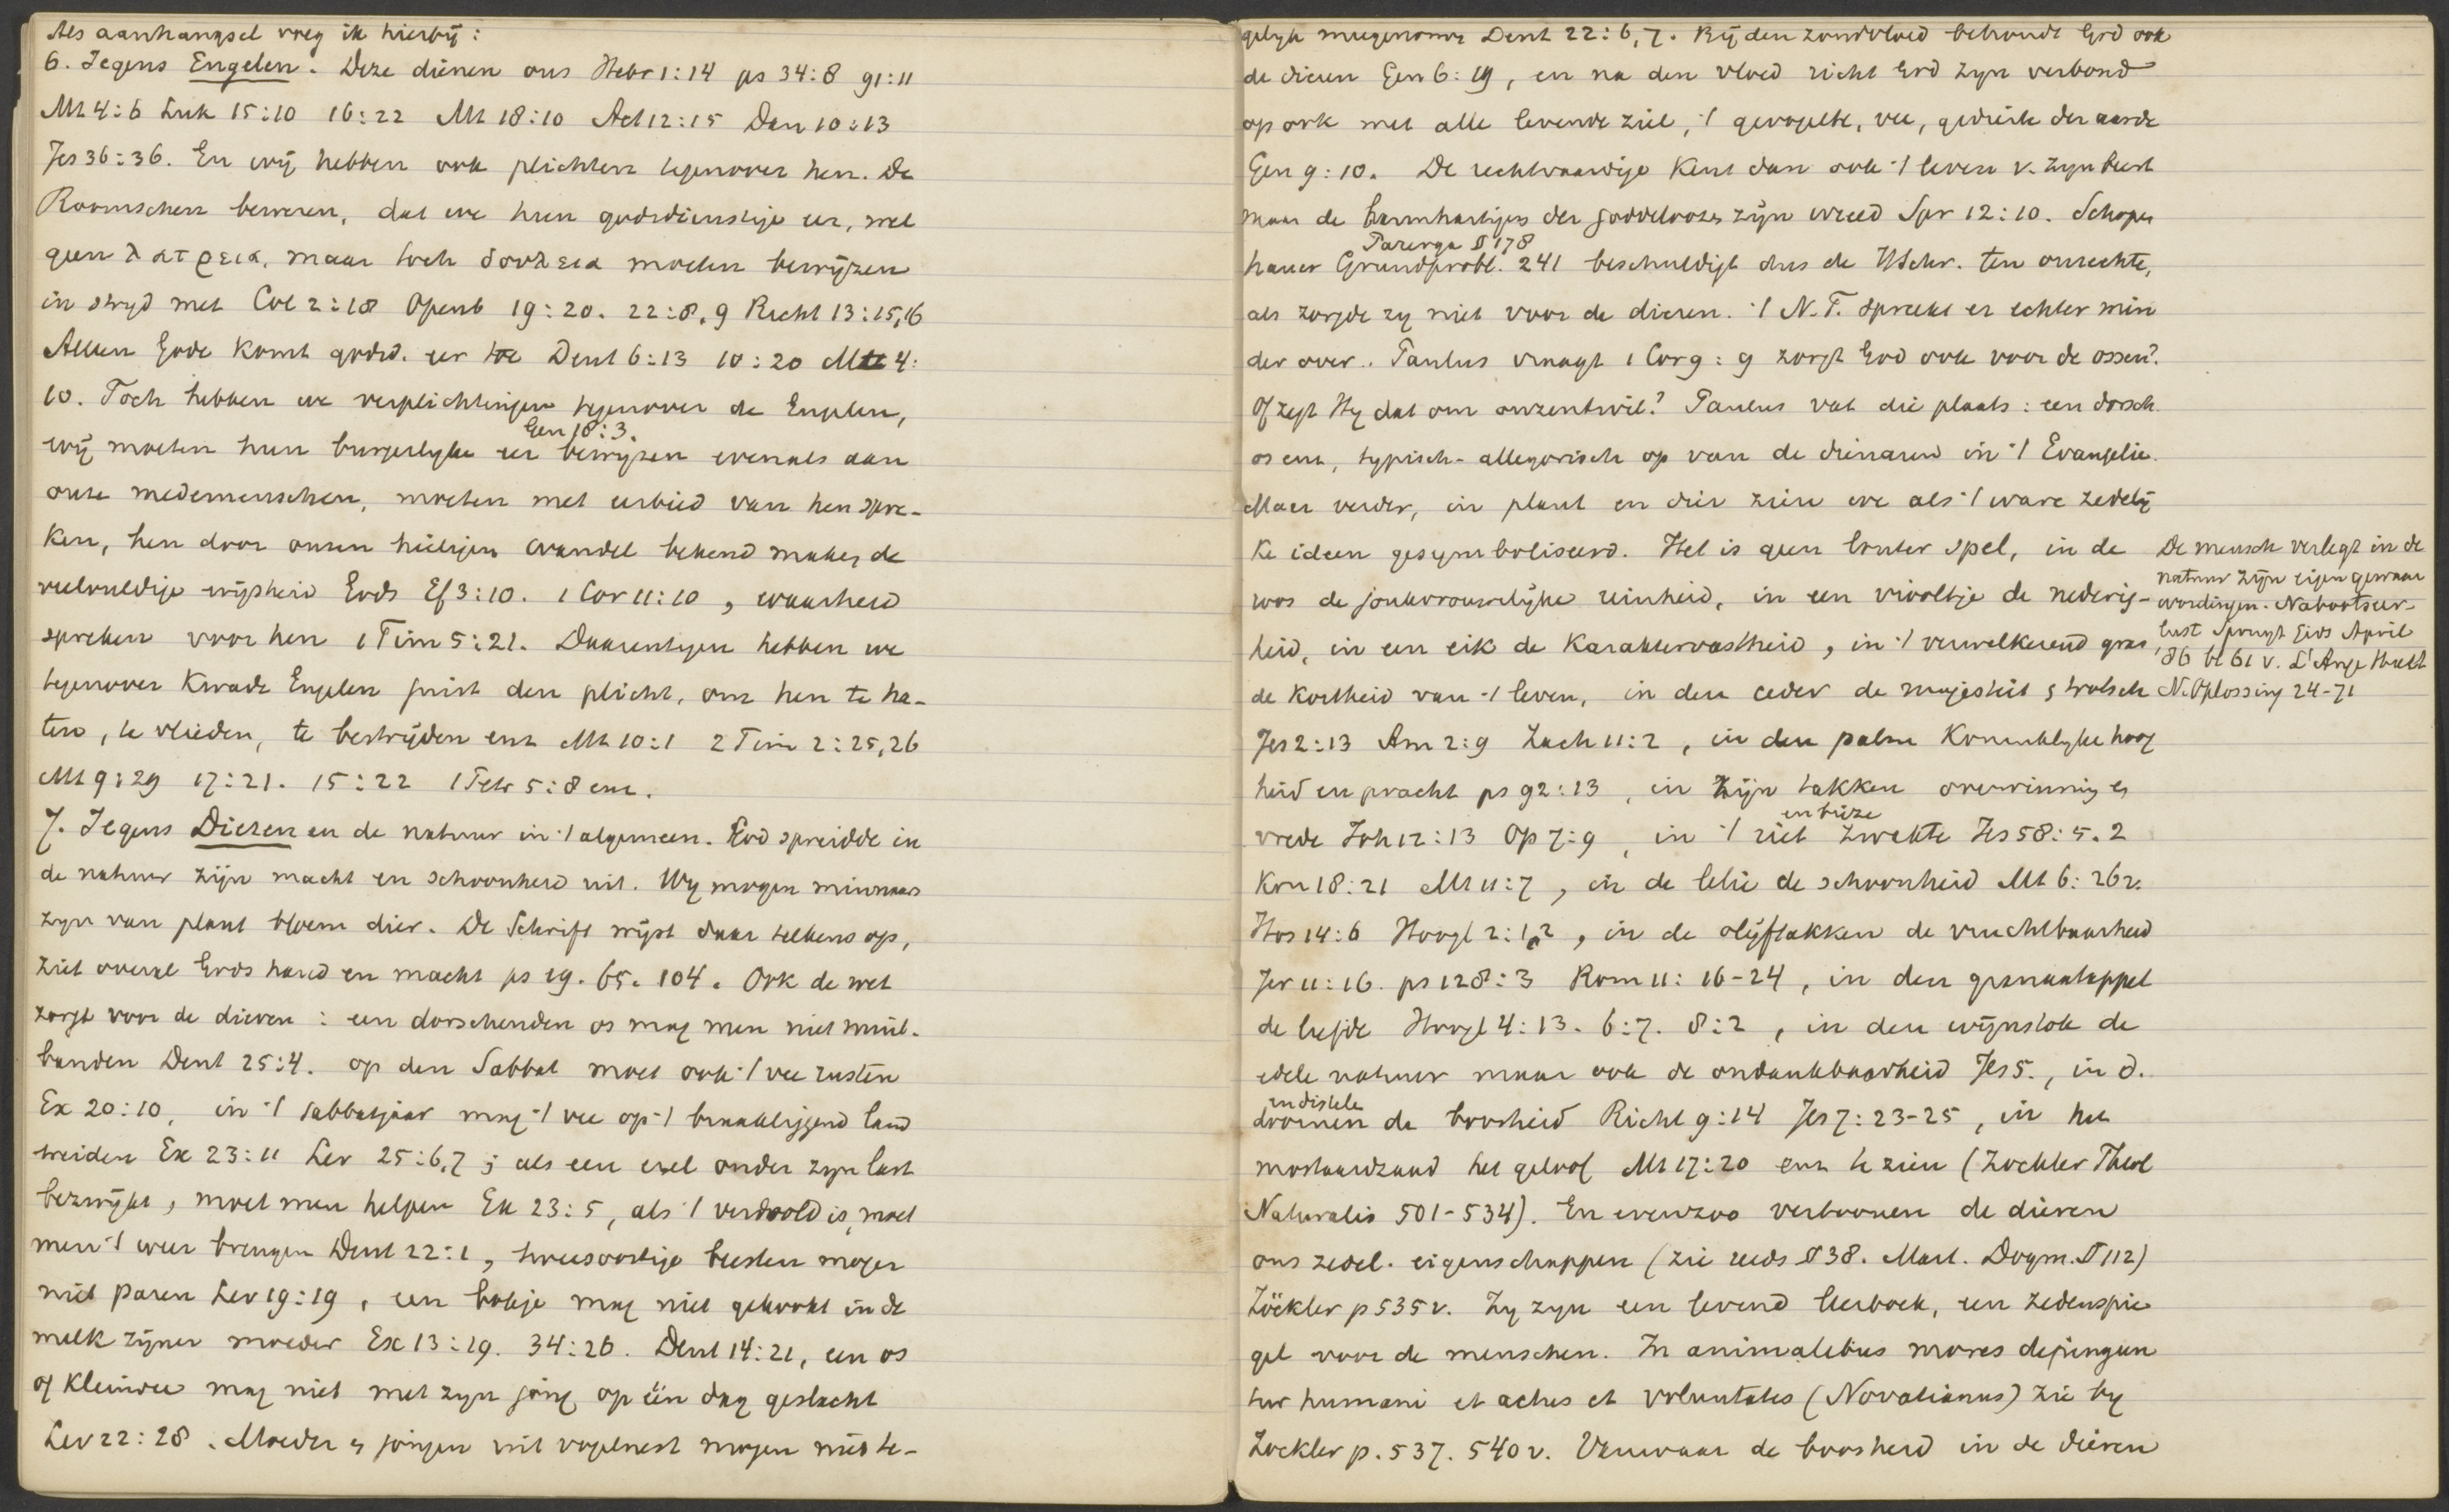 Als aanhangsel voeg ik hierbij:
6. Jegens Engelen. Deze dienen ons Hebr 1:14 ps 34:8 91:11
Mt 4:6 Luk 15:10 16:22 Mt 18:10 Act 12:15 Dan 10:13
Jes 36:36. En wij hebben ook plichten tegenover hen. De
Roomschen beweren, dat we hun godsdienstige eer, wel
geen λατρεια, maar toch δουλεια moeten bewijzen
in stryd met Col 2:18 Openb 19:20. 22:8,9 Richt 13:15,16
Alleen Gode komt godsd. eer toe Deut 6:13 10:20 Mt 4:
10. Toch hebben we verplichtingen tegenover de Engelen,
Gen 18:3.
wij moeten hun burgerlyke eer bewyzen evenals aan
onze medemenschen, moeten met eerbied van hen spre-
ken, hen door onzen heiligen wandel bekend maken de
veelvuldige wijsheid Gods Ef 3:10. 1 Cor 11:10, waarheid
spreken voor hen 1 Tim 5:21. Daarentegen hebben we
tegenover Kwade Engelen juist den plicht, om hen te ha-
ten, te vlieden, te bestrijden enz Mt 10:1 2 Tim 2:25,26
Mt 9:29 17:21. 15:22 1 Petr 5:8 enz.
7. Jegens Dieren en de natuur in 't algemeen. God spreidde in
de natuur zijn macht en schoonheid uit. Wy mogen minnaars
zyn van plant bloem dier. De Schrift wijst daar telkens op,
ziet overal Gods hand en macht ps 19. 65. 104. Ook de wet
zorgt voor de dieren: een dorschenden os mag men niet muil-
banden Deut 25:4. op den Sabbat moet ook 't vee rusten
Ex 20:10, in 't sabbatjaar mag 't vee op 't braakliggend land
weiden Ex 23:11 Lev 25:6,7; als een ezel onder zyn last
bezwijkt, moet men helpen Ex 23:5, als 't verdoold is, moet
men 't weer brengen Deut 22:1, tweesoortige beesten mogen
niet paren Lev 19:19, een bokje mag niet gekookt in de
melk zijner moeder Ex 13:19. 34:26. Deut 14:21, een os
of kleinvee mag niet met zyn jong op één dag geslacht
Lev 22:28. Moeder & jongen uit vogelnest mogen niet te-
gelyk meegenomen Deut 22:6,7. By den zondvloed behoudt God ook
de dieren Gen 6:19, en na den vloed richt God zyn verbond
op ook met alle levende ziel, 't gevogelte, vee, gedierte der aarde
Gen 9:10. De rechtvaardige kent dan ook 't leven v. zyn beest
maar de barmhartighed der goddeloozen zijn wreed Spr 12:10. Schopen
Parerga § 178
hauer Grundprobl. 241 beschuldigt dus de H Schr. ten onrechte,
als zorgde zy niet voor de dieren. 't N.T. spreekt er echter min
der over. Paulus vraagt 1 Cor 9:9 zorgt God ook voor de ossen?
Of zegt Hy dat om onzentwil? Paulus vat die plaats: een dorsch.
os enz, typisch-allegorisch op van de dienaren in 't Evangelie.
Maar verder, in plant en dier zien we als 't ware zedelij
ke ideen gesymboliseerd. Het is geen louter spel, in de
roos de jonkvrouwelijke reinheid, in een viooltje de nederig-
heid, in een eik de karaktervastheid, in 't verwelkend gras,
de kortheid van 't leven, in den ceder de majesteit & trotsch
Jes 2:13 Am 2:9 Zach 11:2, in den palm Koninklyke hoog
heid en pracht ps 92:13, in zijn takken overwinning &
en broze
vrede Joh 12:13 Op 7:9, in 't riet zwakte Jes 58:5. 2
Kon 18:21 Mt 11:7, in de lelie de schoonheid Mt 6:26v.
Hos 14:6 Hoogl 2:1,2, in de olijftakken de vruchtbaarheid
Jer 11:16. ps 128:3 Rom 11:16-24, in den granaatappel
de liefde Hoogl 4:13. 6:7. 8:2, in den wijnstok de
edele natuur maar ook de ondankbaarheid Jes 5., in d.
en distels
doornen de boosheid Richt 9:14 Jes 7:23-25, in het
mostaardzaad het geloof Mt 17:20 enz te zien (Zockler Theol
Naturalis 501-534). En evenzoo vertoonen de dieren
ons zedel. eigenschappen (zie reeds § 38. Mart. Dogm. § 112)
Zöckler p 535 v. Zy zyn een levend leerboek, een zedenspie
gel voor de menschen. In animalibus mores depingun
tur humani et actus et voluntates (Novatianus) zie by
Zockler p. 537. 540 v. Vanwaar de boosheid in de dieren
De mensch verlegt in de
natuur zijn eigen gewaar
wordingen. Nabootseer-
86 bl 61 v. L'Ange Huet
N. Oplossing 24-71